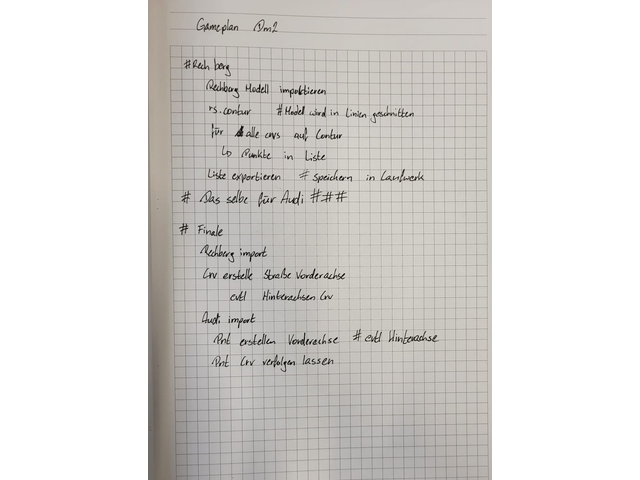 Gameplan Dm2
#Rechberg
Rechberg Modell importieren
rs.contur # Modell wird in Linien geschnitten
für alle crvs auf Contur
↳ Punkte in Liste
Liste exportieren # speichern in Laufwerk
# Das selbe für Audi ###
# Finale
Rechberg import
Crv erstelle Straße Vorderachse
evtl Hinterachsen Crv
Audi import
Pnt erstellen Vorderachse # evtl Hinterachse
Pnt Crv verfolgen lassen